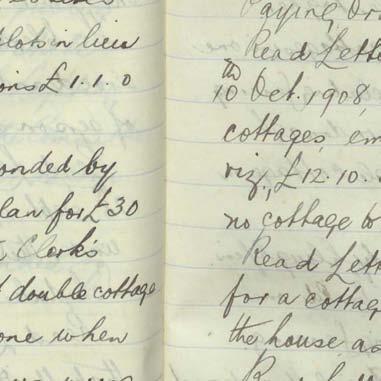 plots in lieu
ons £1.1.0
onded by
lan for £30
Clerk's
double cottage
one when
Paying Or
Read Lette
10th Oct. 1908,
cottages, em
riz, £12.10.
no cottage to
Read Lett
for a cottag
the house as